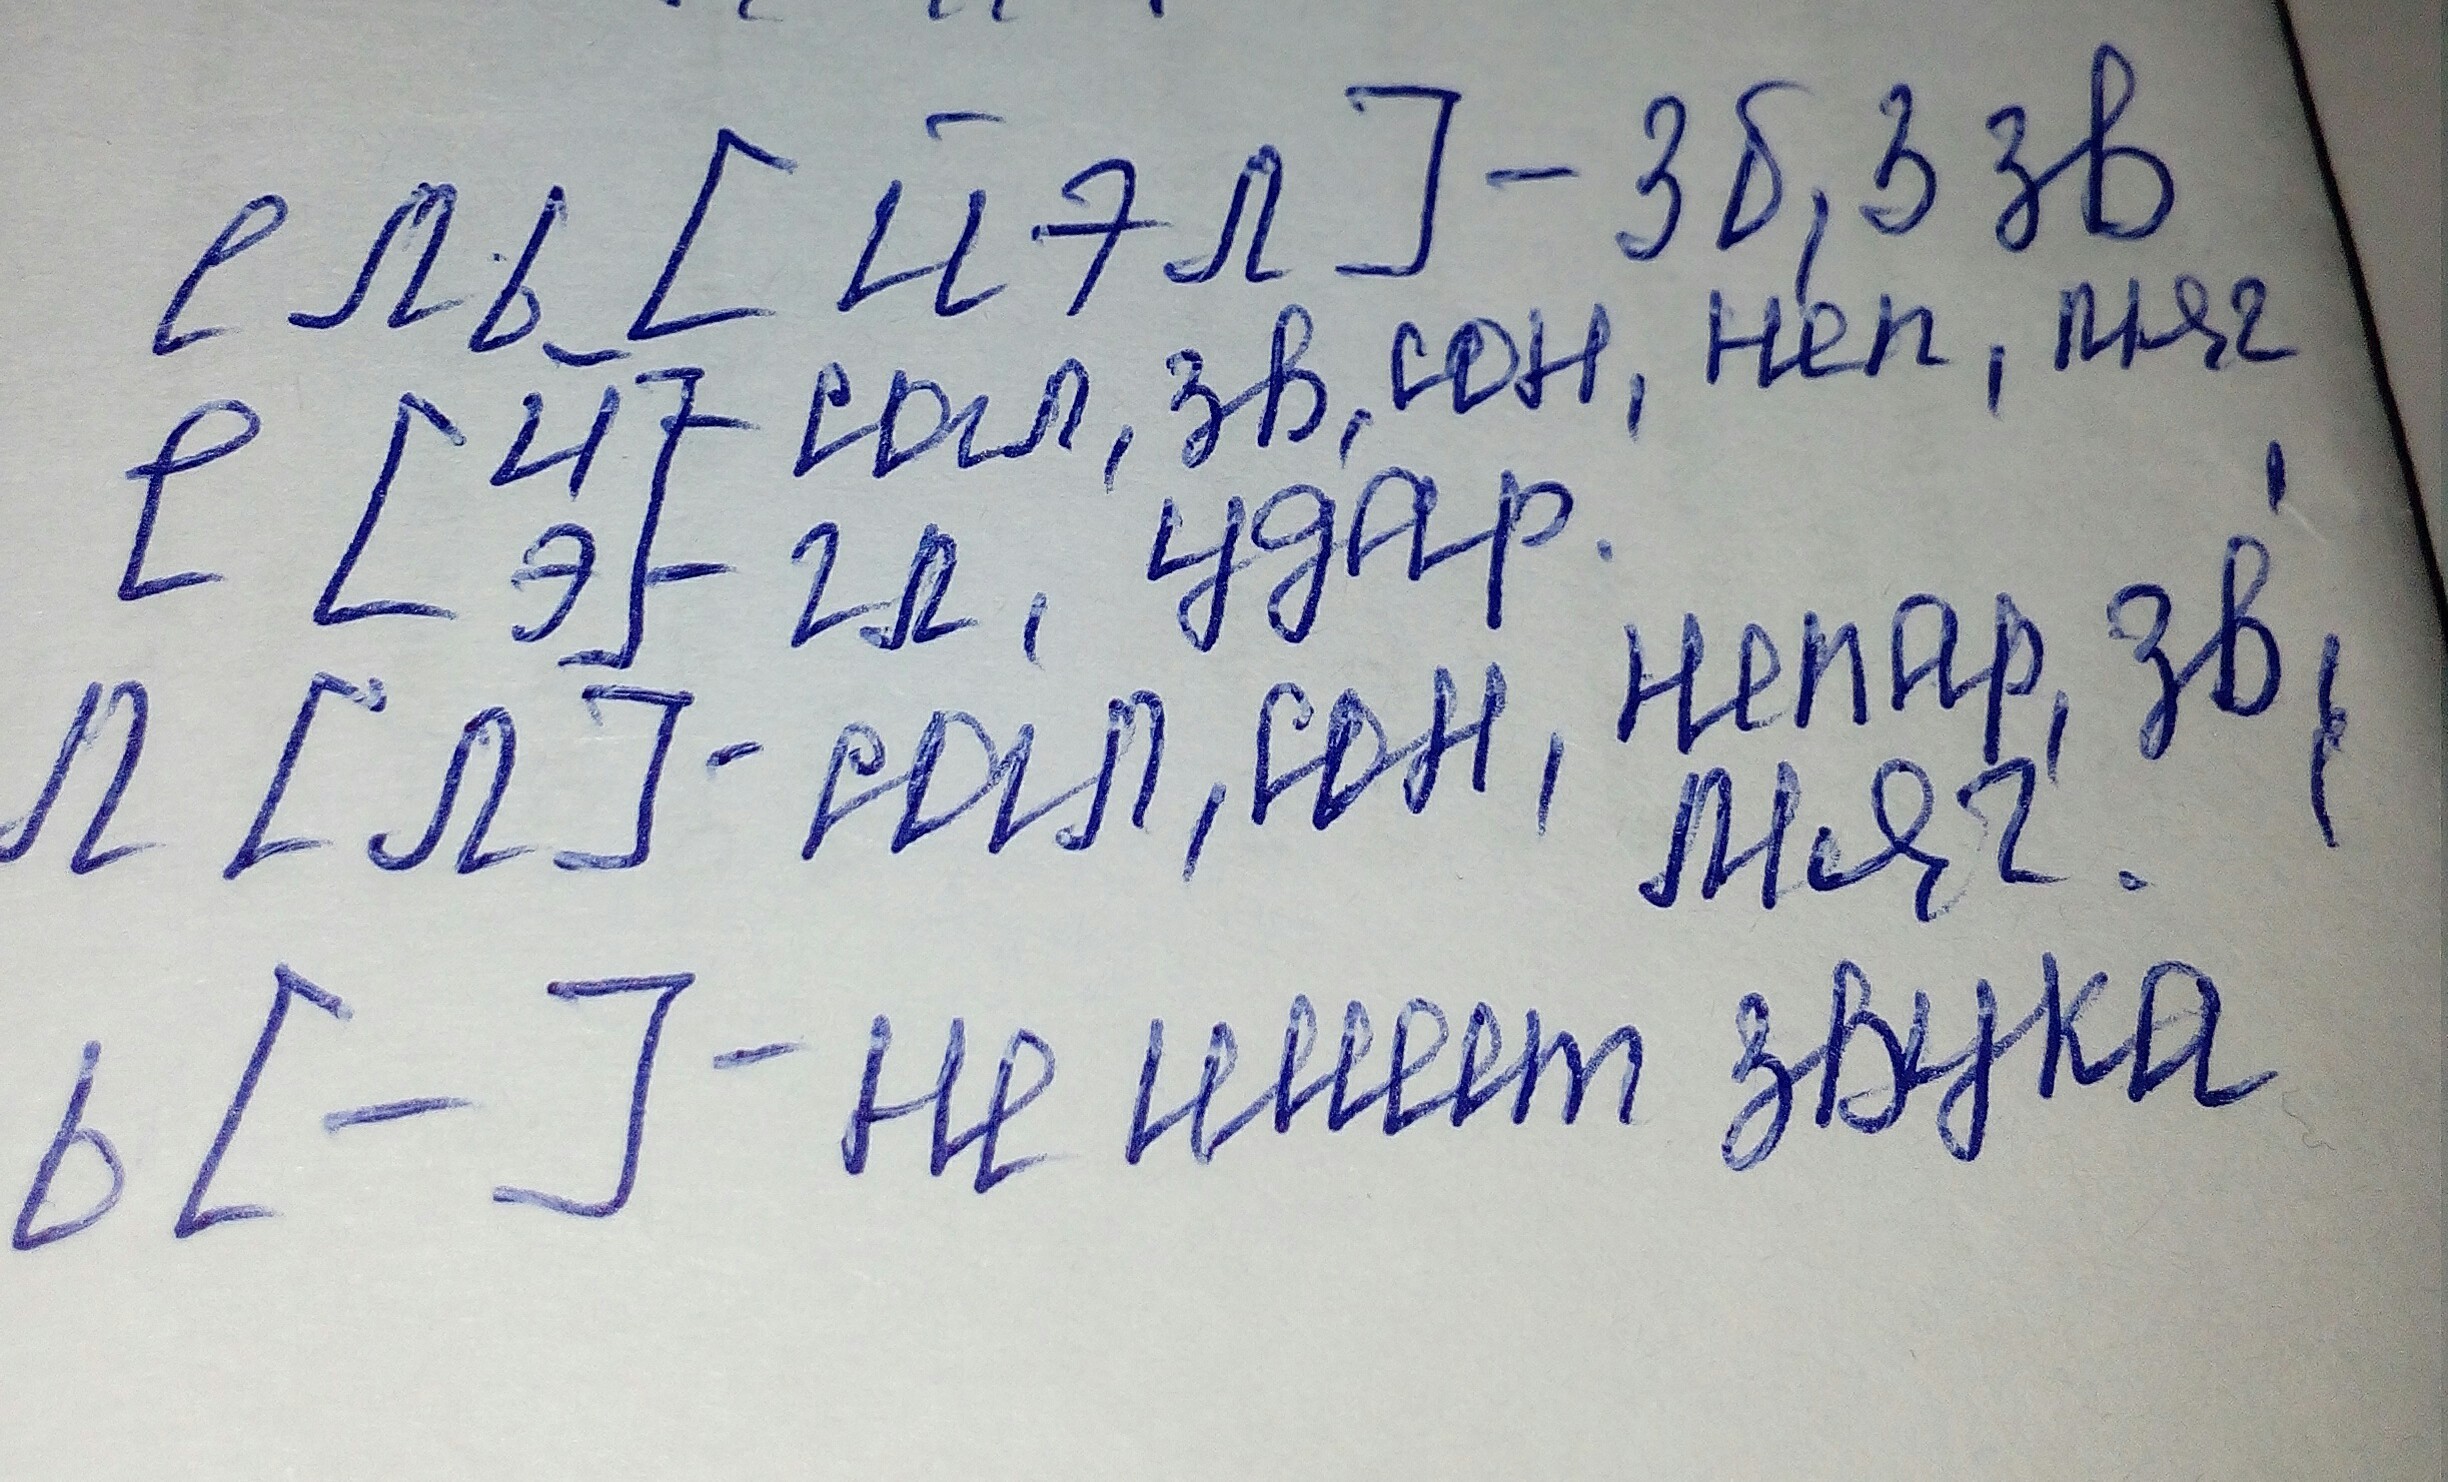 ель [йэл] - 3 б, 3 зв
е [й] - согл, зв, сон, неп, мяг,
[э] - гл, удар.
л [л] - согл, сон, непар, зв,
мяг.
ь [-] - не имеет звука